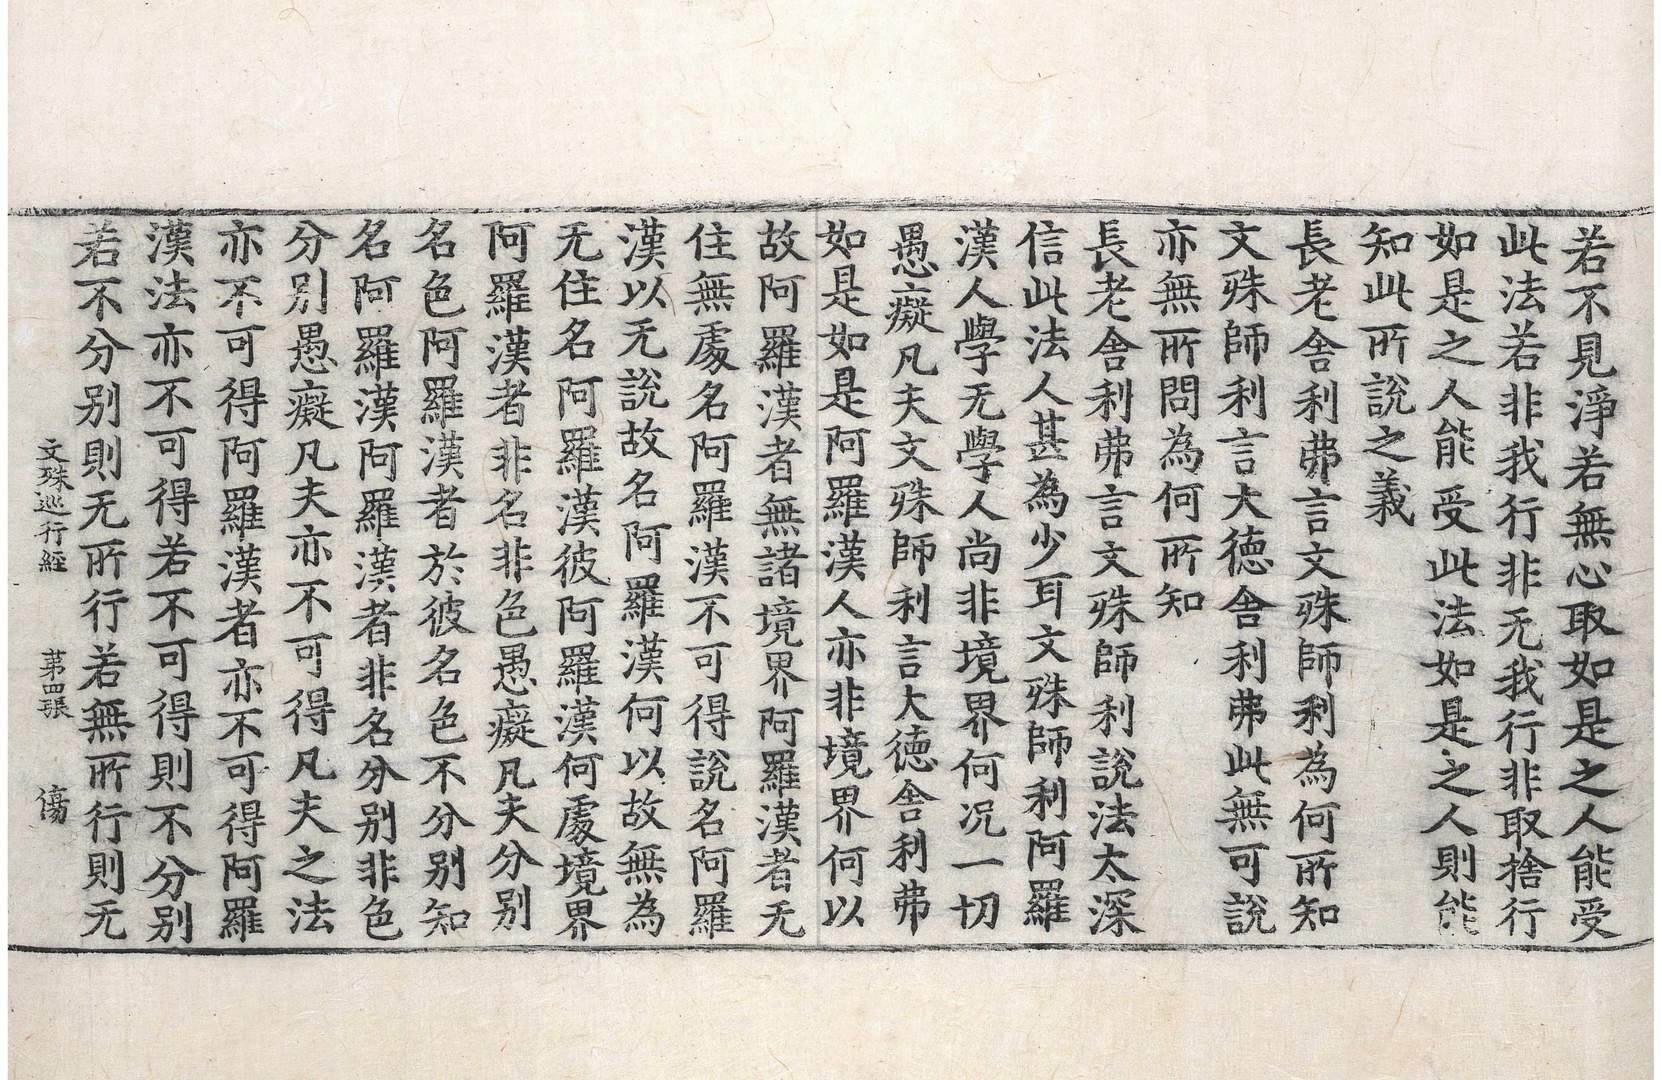 若不見淨若無心取如是之人能受
此法若非我行非无我行非取捨行
如是之人能受此法如是之人則能
知此所說之義
長老舍利弗言文殊師利為何所知
文殊師利言大德舍利弗此無可說
亦無所問為何所知
長老舍利弗言文殊師利說法太深
信此法人甚為少耳文殊師利阿羅
漢人學无學人尚非境界何况一切
愚癡凡夫文殊師利言大德舍利弗
如是如是阿羅漢人亦非境界何以
故阿羅漢者無諸境界阿羅漢者无
住無處名阿羅漢不可得說名阿羅
漢以无說故名阿羅漢何以故無為
无住名阿羅漢彼阿羅漢何處境界
阿羅漢者非名非色愚癡凡夫分別
名色阿羅漢者於彼名色不分別知
名阿羅漢阿羅漢者非名分別非色
分別愚癡凡夫亦不可得凡夫之法
亦不可得阿羅漢者亦不可得阿羅
漢法亦不可得若不可得則不分別
若不分別則无所行若無所行則无
文殊巡行經 第四張 傷